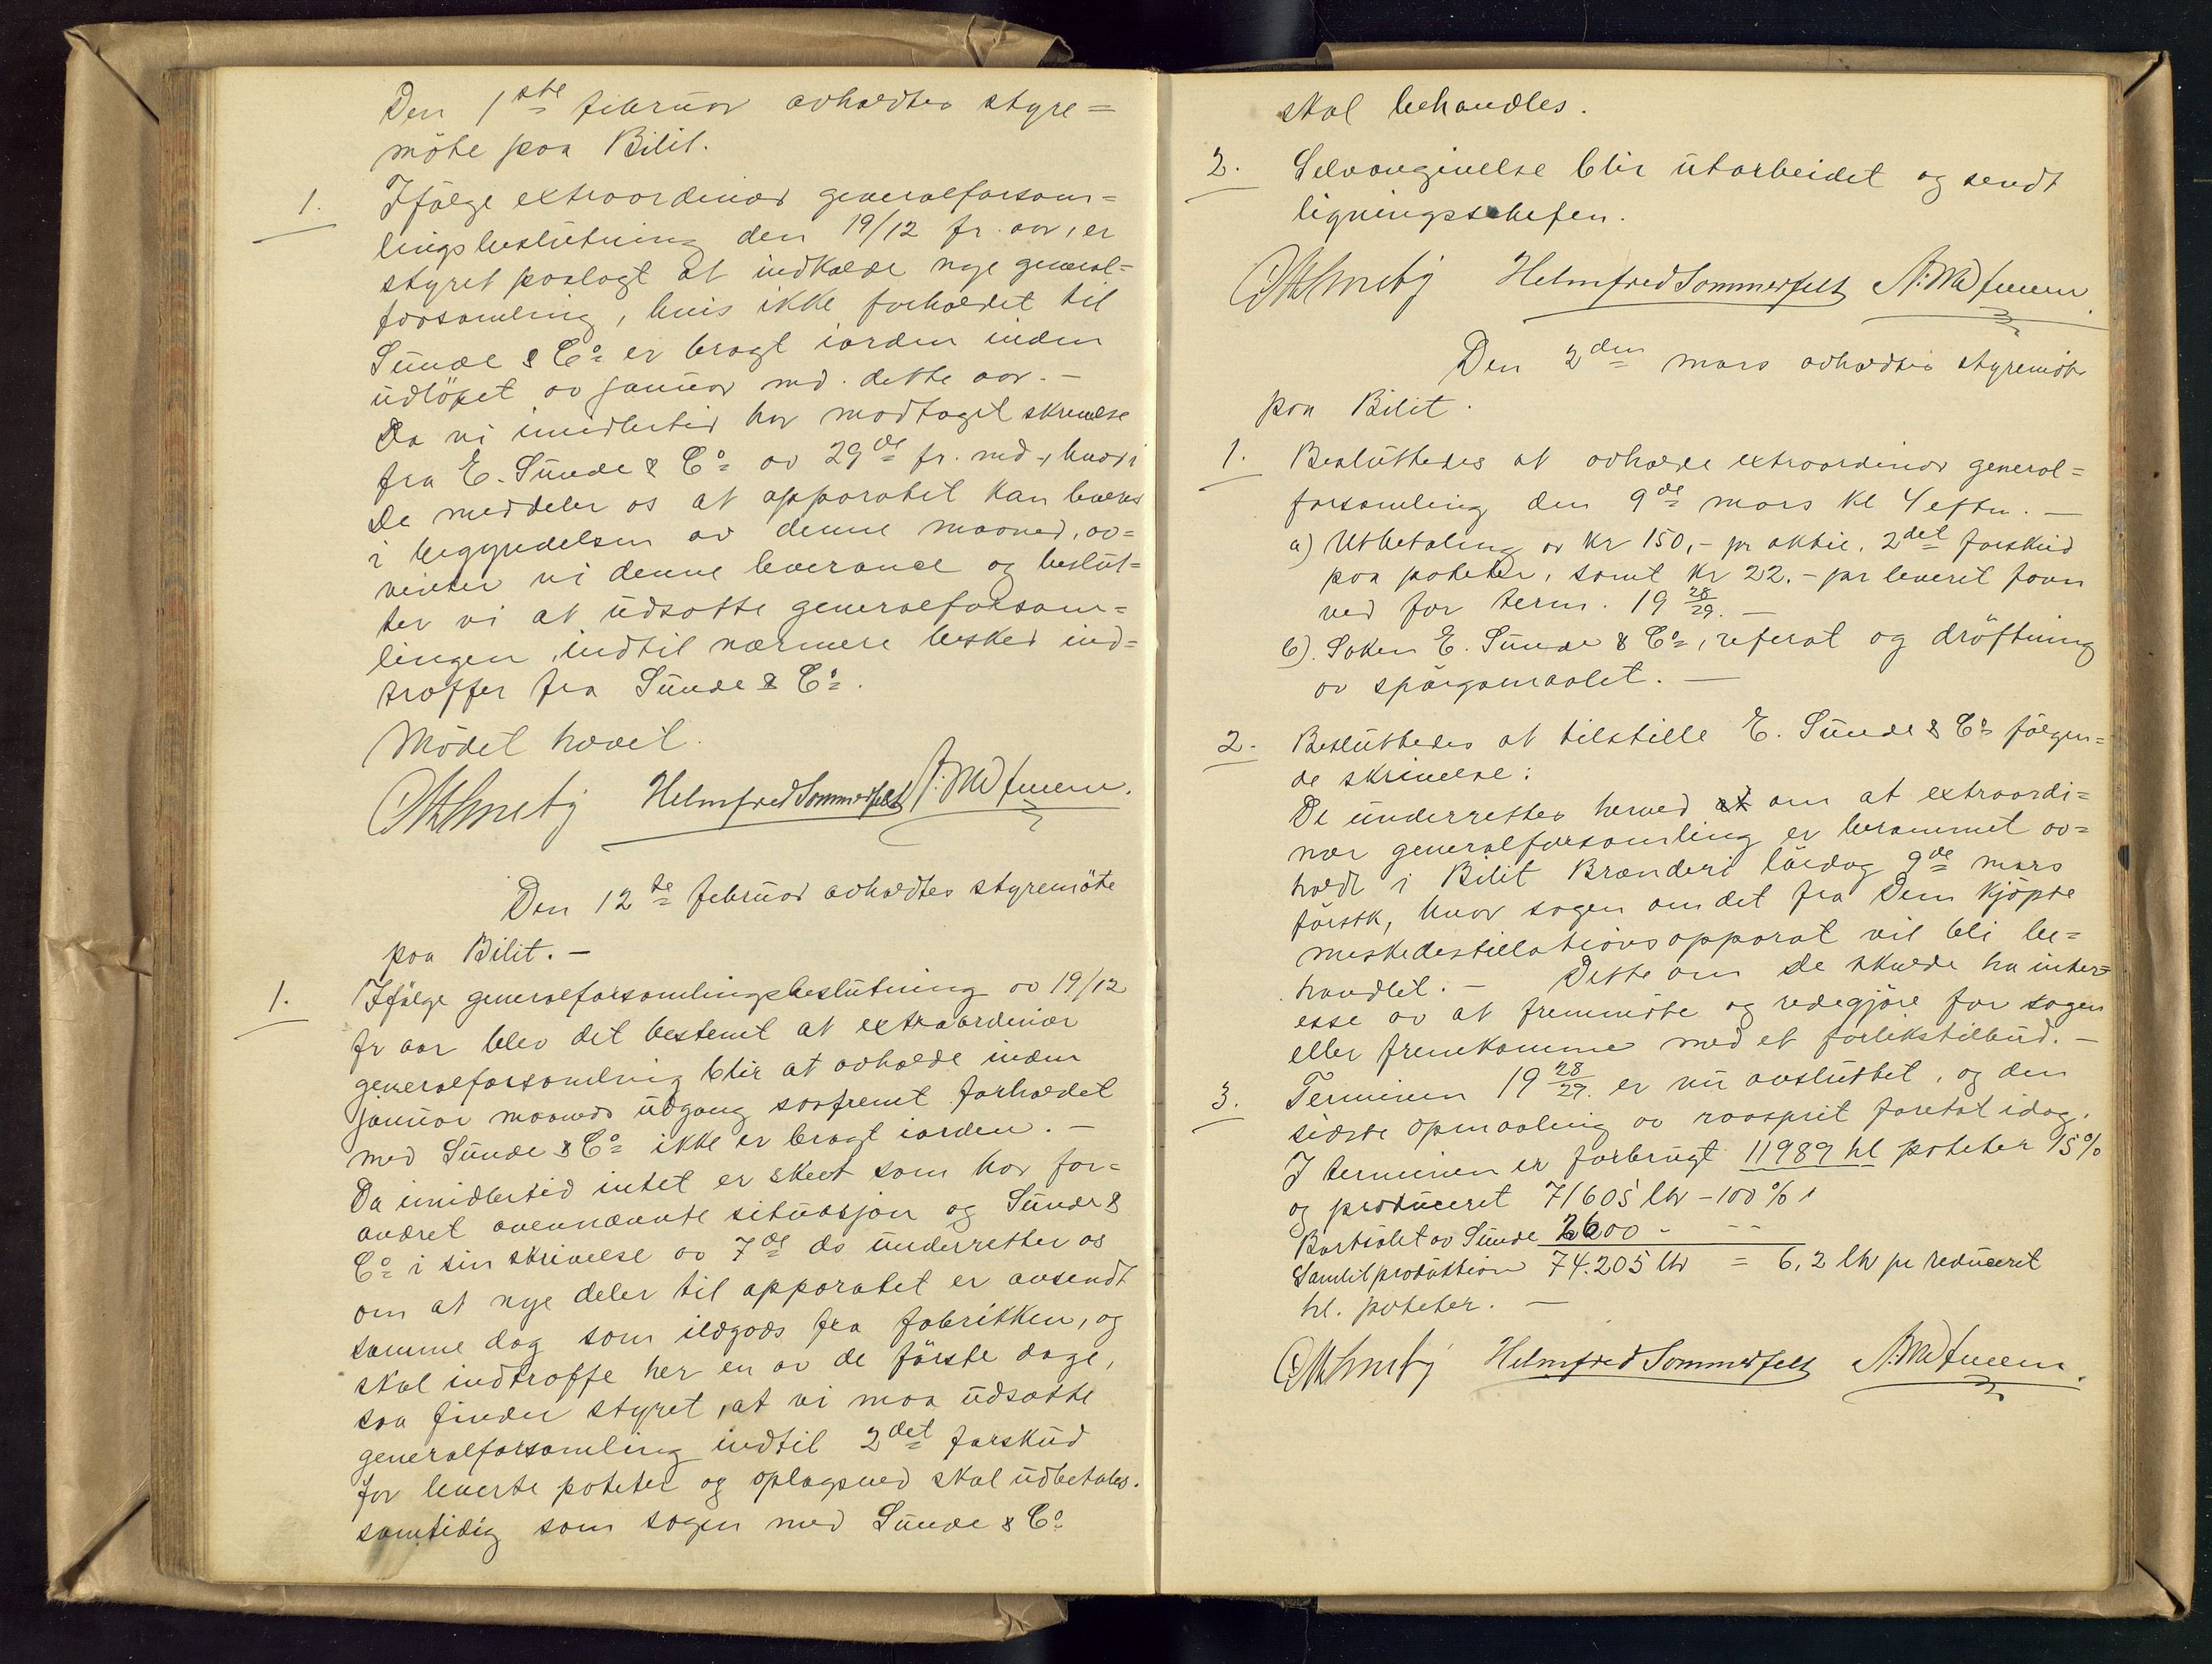 Den 1ste februar avholdtes styre=
möte paa Bilit.
1. Ifölge extraordinær generalforsam=
lingsbeslutning den 19/12 fr. aar, er
styret paalagt at indkalde nye general=
forsamling, hvis ikke forholdet til
Sunde & Co er bragt iorden inden
udlöpet av januar md. dette aar. –
Da vi imidlertid har modtaget skrivelse
fra E. Sunde & Co av 29de fr. md., hvori
De meddeler os at apparatet kan leveres
i begyndelsen av denne maaned, av=
venter vi denne leverance og beslut=
ter vi at udsætte generalforsam=
lingen, indtil nærmere besked ind=
træffer fra Sunde & Co.
Mödet hævet.
Helmfred Sommerfelt
Den 12te februar avholdtes styremöte
paa Bilit. –
1. Ifölge generalforsamlingsbeslutning av 19/12
fr aar blev det bestemt at extraordinær
generalforsamling blir at avholde inden
januar maaneds udgang saafremt forholdet
med Sunde & Co ikke er bragt iorden. –
Da imidlertid intet er skeet som har for=
andret ovennævnte situasjon og Sunde &
Co i sin skrivelse av 7de ds underretter os
om at nye deler til apparatet er avsendt
samme dag som ilgods fra fabrikken, og
skal indtræffe her en av de förste dage,
saa finder styret, at vi maa udsætte
generalforsamling indtil 2det forskud
for leverte poteter og oplagsved skal udbetales.
samtidig som sagen med Sunde & Co
skal behandles.
2. Selvangivelse blir utarbeidet og sendt
ligningschefen.
Helmfred Sommerfelt
Den 2den mars avholdtes styremöte
paa Bilit.
1. Besluttedes at avholde extraordinær general=
forsamling den 9de mars kl 4 eftm. –
a) Utbetaling av kr 150,- pr aktie. 2det forskud
paa poteter, samt kr 22.- pr leverit favn
ved for term. 19 28/29. –
b). Saken E. Sunde & Co, referat og dröftning
av spörgsmaalet. –
2. Besluttedes at tilstille E. Sunde & Co fölgen=
de skrivelse:
De underrettes herved at om at extraordi=
nær generalforsamling er berammet av=
holdt i Bilit Brænderi lördag 9de mars
förstk, hvor sagen om det fra Dem kjöpte
meskedestillationsapparat vil bli be=
handlet. – Dette om De skulde ha inter=
esse av at fremmöte og redegjöre for sagen
eller fremkomme med et forlikstilbud. –
3. Terminen 19 28/29. er nu avsluttet, og den
sidste opmaaling av raasprit foretat idag.
I terminen er forbrugt 11989 hl poteter 15%
og produceret 71605 ltr – 100 % i
Bortsölet av Sunde 2600 - - -
Samlet produktion 74.205 ltr = 6,2 ltr pr reduceret
hl. poteter. –
Helmfred Sommerfelt